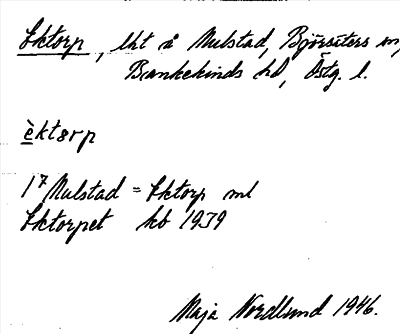 Ektorp, lht å Mulstad, Björsäters sn,
Bankekinds hd, Östg. l.
èktɵrp
1⁷ Mulstad = Ektorp ml
Ektorpet kb 1939
Maja Nordlund 1946.